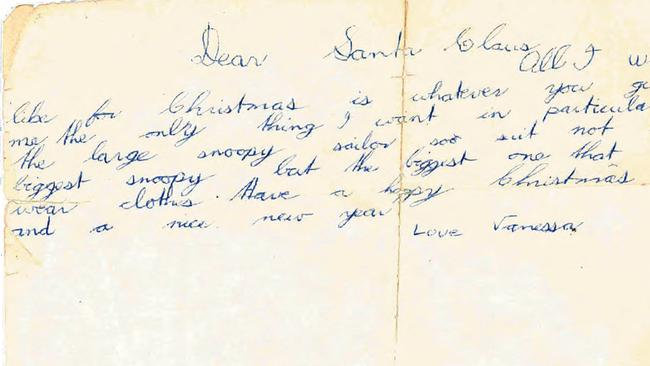 Dear Santa Claus
All I w
like for Christmas is whatever you g
me the only thing I want in particula
the large snoopy sailor soo suit not
biggest snoopy but the biggest one that
wear clothes. Have a happy Christmas
and a nice new year
Love Vanessa